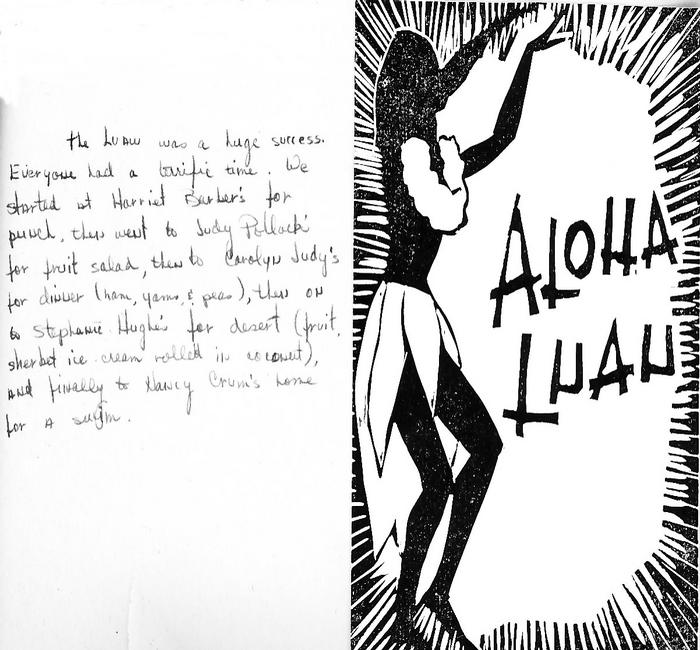 the Luau was a huge success.
Everyone had a terrific time. We
started at Harriet Barber's for
punch, then went to Judy Pollack'
for fruit salad, then to Carolyn Judy's
for dinner (ham, yams, & peas), then on
to Stephanie Hugh's for desert (fruit,
sherbet ice cream rolled in coconut),
and finally to Nancy Crum's home
for a swim.
ALOHA
LUAU